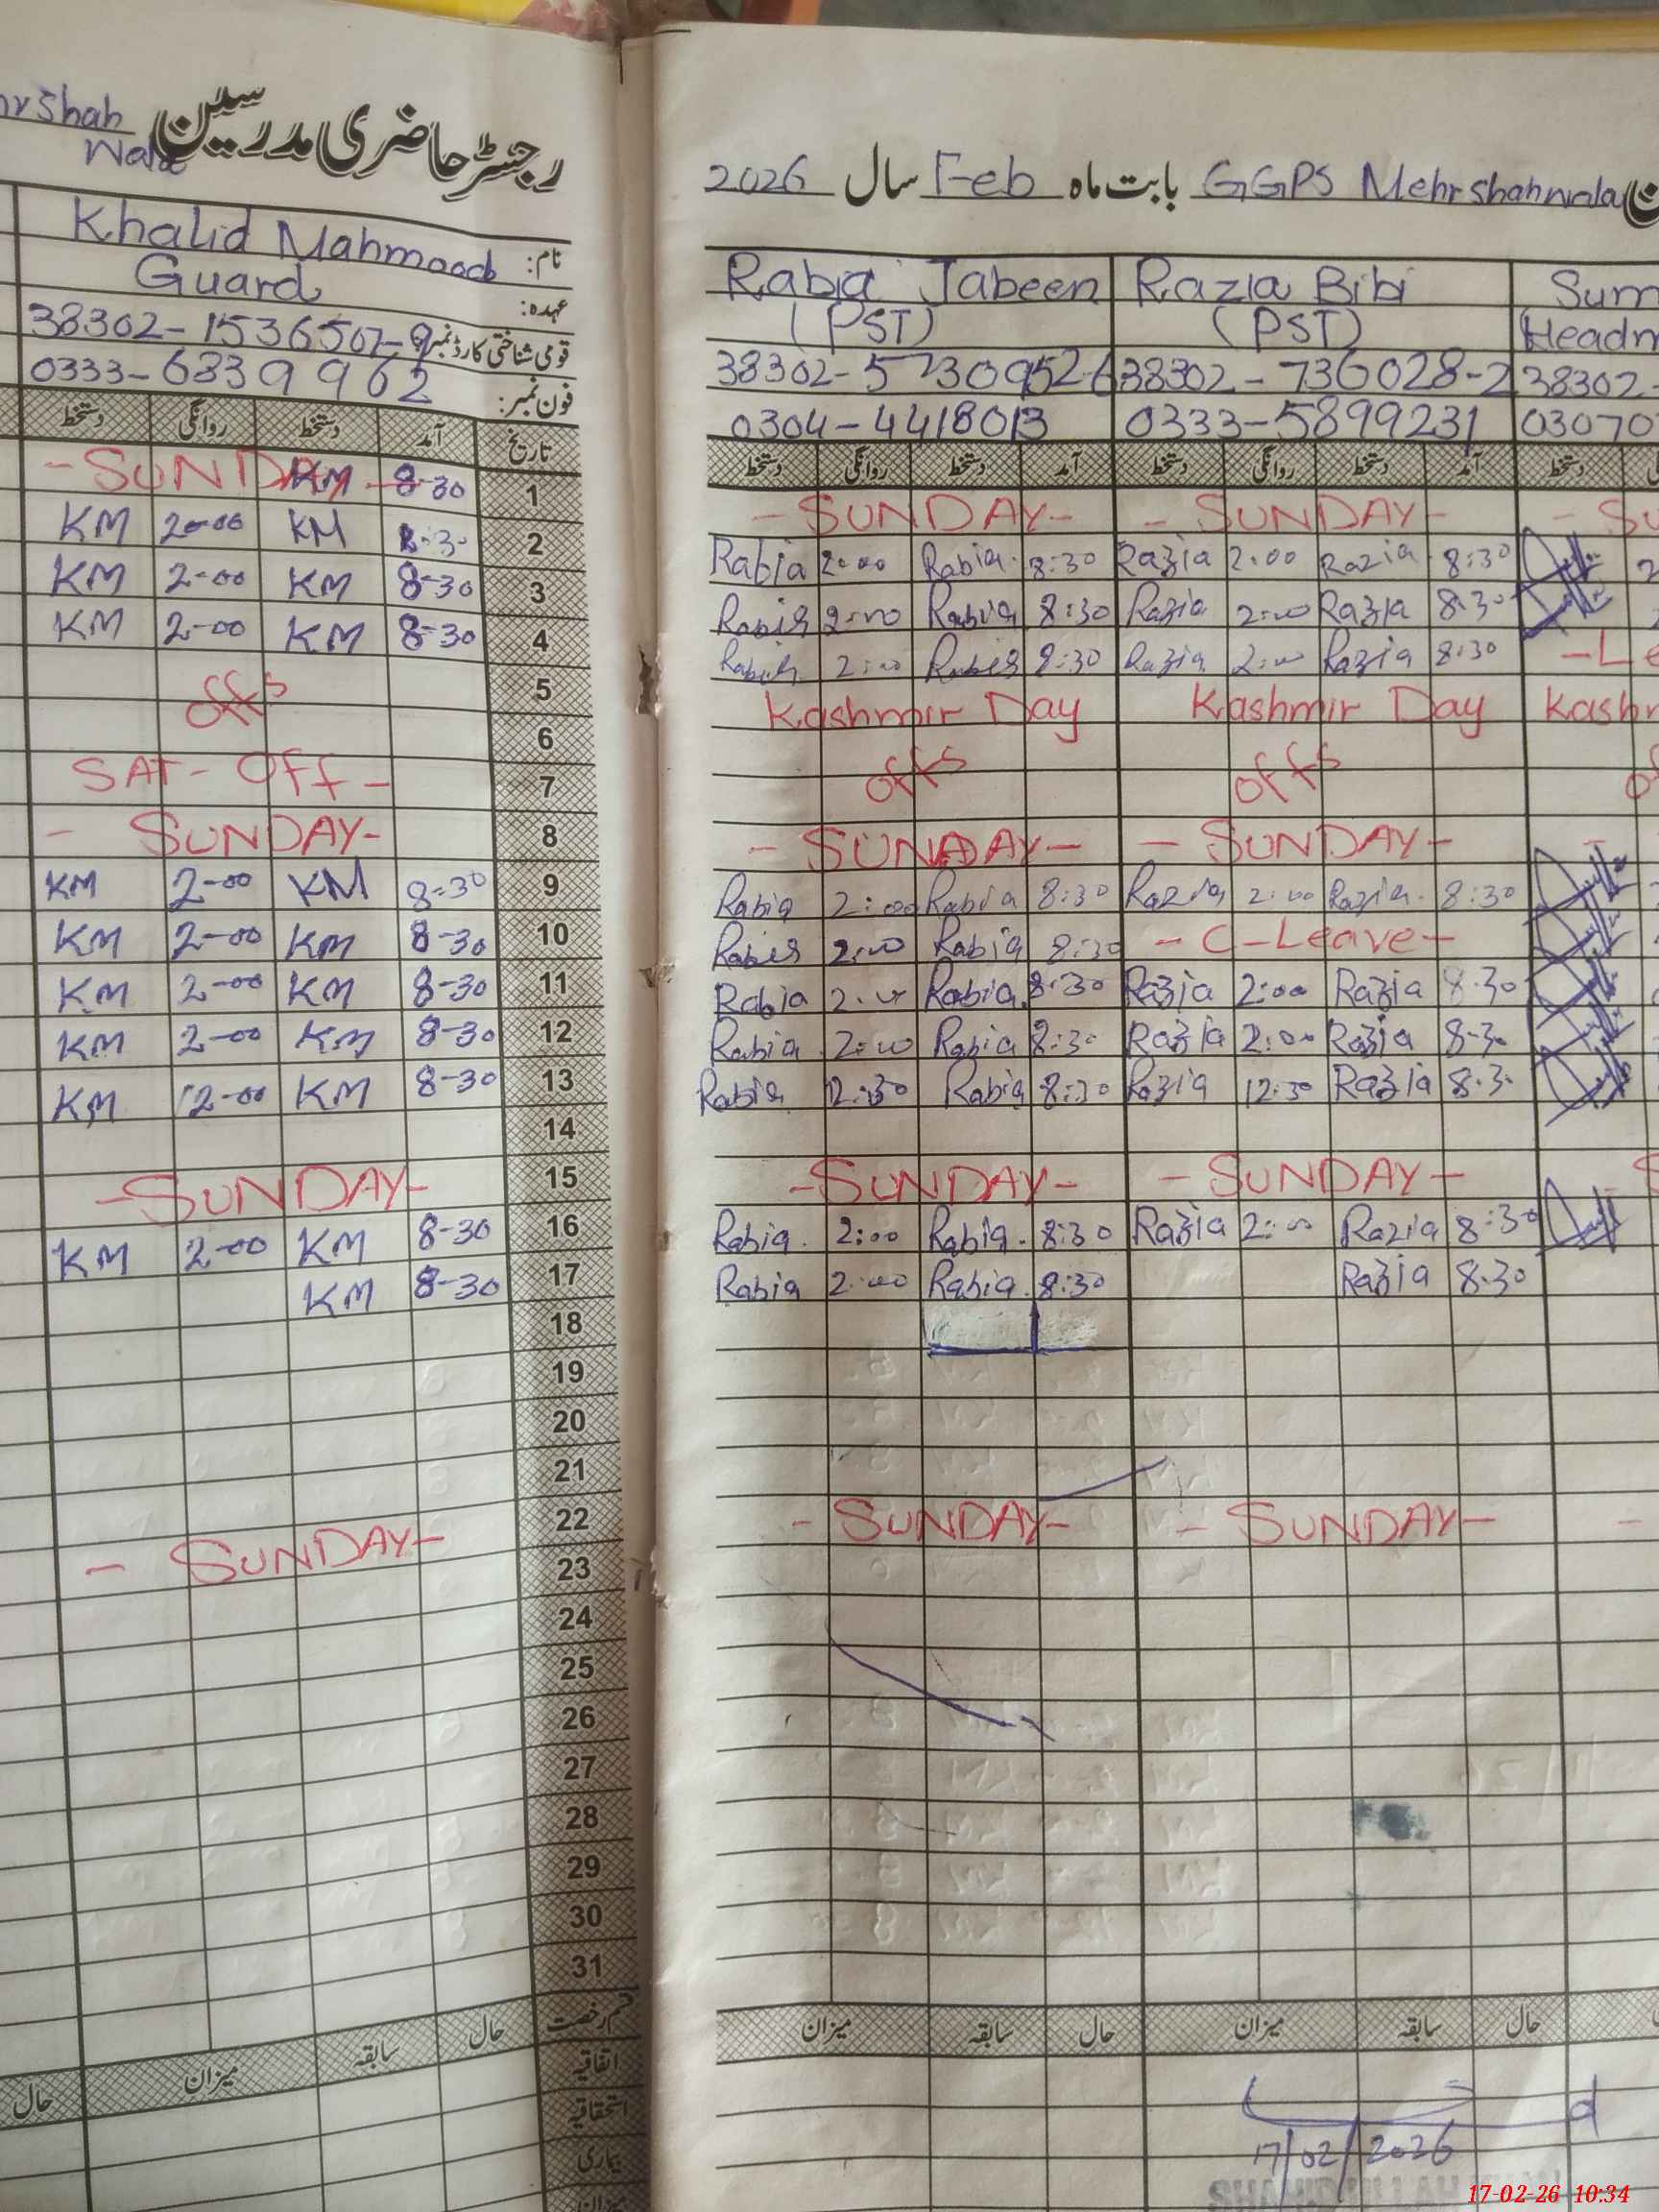 رجسٹر حاضری مدرسین
Shah
Wala
نام: Khalid Mahmood
عہدہ: Guard
قومی شناختی کارڈ نمبر: 38302-1536507-9
فون نمبر: 0333-6339962
تاریخ آمد دستخط روانگی دستخط
1 8-30 KM -SUNDAY-
2 8:30 KM 2-00 KM
3 8-30 KM 2-00 KM
4 8-30 KM 2-00 KM
5 offs
6
7 SAT- Off -
8 - SUNDAY-
9 8-30 KM 2-00 KM
10 8-30 KM 2-00 KM
11 8-30 KM 2-00 KM
12 8-30 KM 2-00 KM
13 8-30 KM 12-00 KM
14
15 -SUNDAY-
16 8-30 KM 2-00 KM
17 8-30 KM
18
19
20
21
22 - SUNDAY-
23
24
25
26
27
28
29
30
31
قسم رخصت حال سابقہ میزان حال
اتفاقیہ
استحقاقیہ
بیماری
میزان
GGPS Mehrshahwala بابت ماہ Feb سال 2026
Rabia Jabeen Razia Bibi Sum
(PST) (PST) (Headm
38302-5730952-6 38302-736028-2 38302-
0304-4418013 0333-5899231 03070
آمد دستخط روانگی دستخط آمد دستخط روانگی دستخط دستخط
-SUNDAY- - SUNDAY- - Su
Rabia 2:00 Rabia 8:30 Razia 2:00 Razia 8:30
Rabia 2:00 Rabia 8:30 Razia 2:00 Razia 8:30
Rabia 2:00 Rabia 8:30 Razia 2:00 Razia 8:30 -Le
Kashmir Day Kashmir Day Kashm
offs offs of
- SUNDAY- - SUNDAY-
Rabia 2:00 Rabia 8:30 Razia 2:00 Razia 8:30
Rabia 2:00 Rabia 8:30 - C-Leave-
Rabia 2:00 Rabia 8:30 Razia 2:00 Razia 8:30
Rabia 2:00 Rabia 8:30 Razia 2:00 Razia 8:30
Rabia 12:30 Rabia 8:30 Razia 12:30 Razia 8:30
-SUNDAY- - SUNDAY- S
Rabia 2:00 Rabia 8:30 Razia 2:00 Razia 8:30
Rabia 2:00 Rabia 8:30 Razia 8:30
- SUNDAY- - SUNDAY- -
حال سابقہ میزان حال سابقہ میزان
17/02/2026
17-02-26 10:34